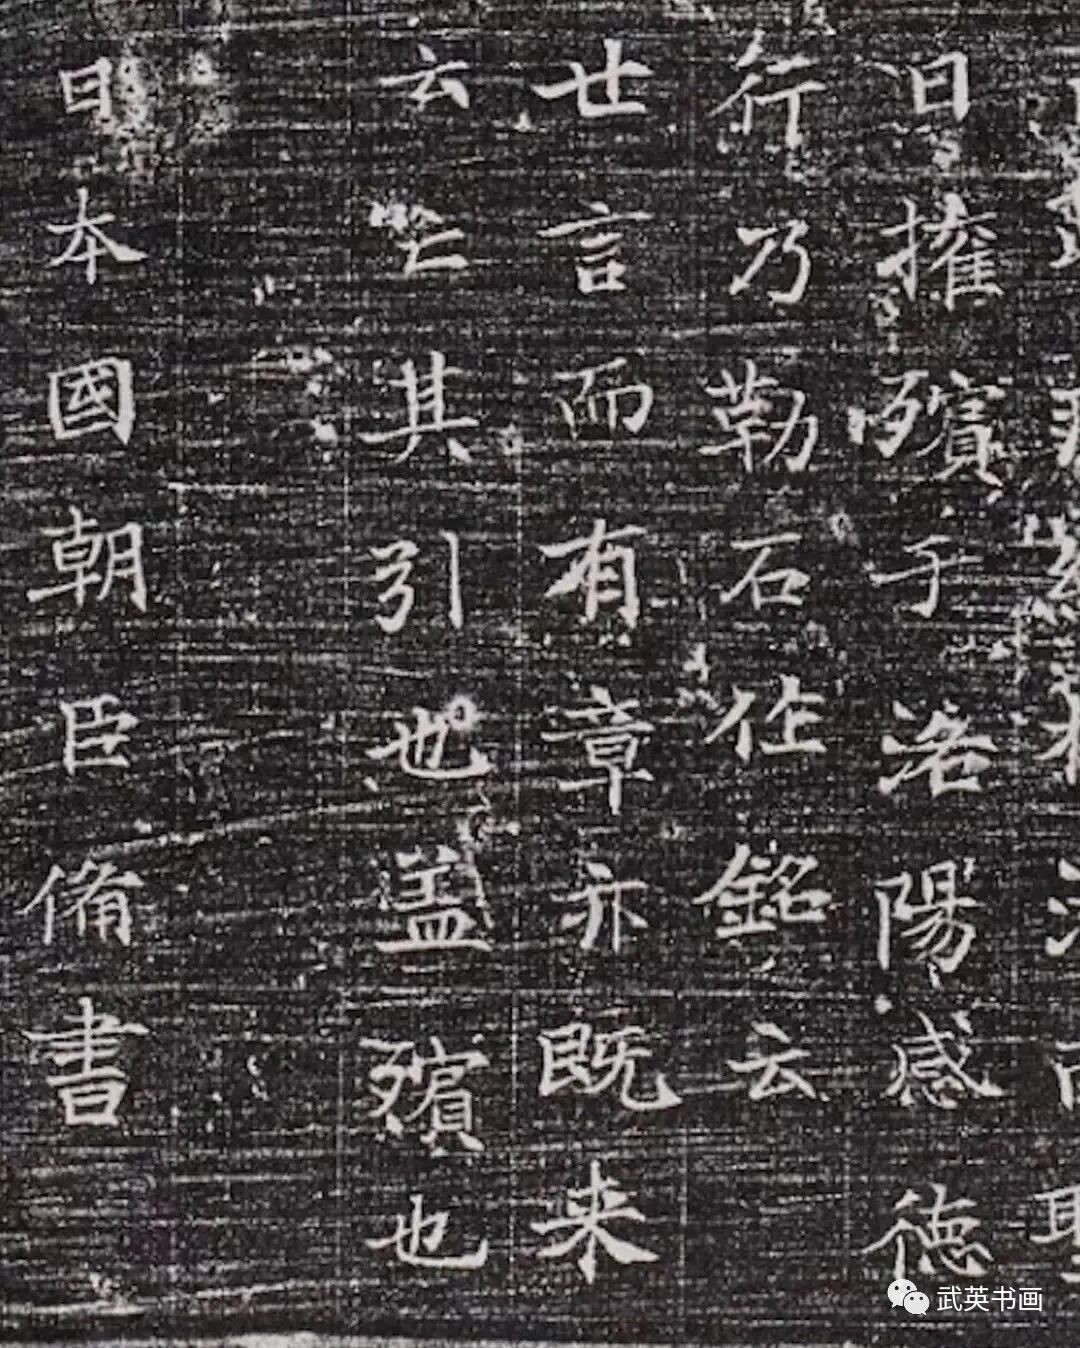 日權殯于洛陽感德
行乃勒石作銘云
世言而有章亦既来
云亡其引也盖殯也
日本國朝臣備書
武英书画